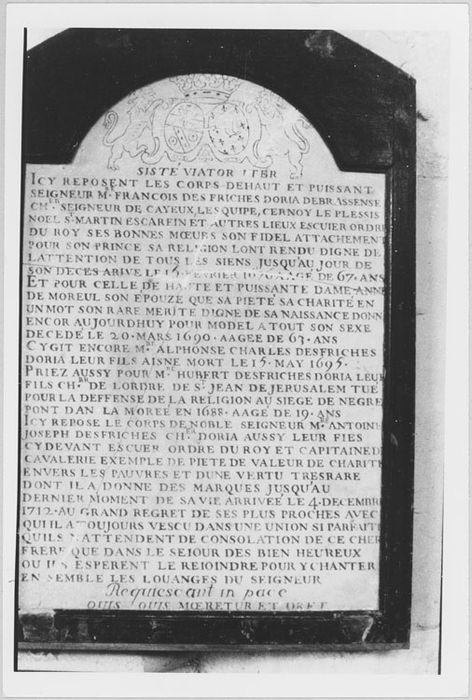 SISTÉ VIATOR ITER
ICY REPOSENT LES CORPS DEHAUT ET PUISSANT
SEIGNEUR Mᴿ FRANCOIS DES FRICHES DORIA DE BRASSENSE
CHᴱᴿ SEIGNEUR DE CAYEUX, LESQUIPE, CERNOY LE PLESSIS
NOEL Sᵀ MARTIN ESCARFIN ET AUTRES LIEUX ESCUIER ORDRE
DU ROY SES BONNES MŒURS SON FIDEL ATTACHEMENT
POUR SON PRINCE SA RELIGION LONT RENDU DIGNE DE
LATTENTION DE TOUS LES SIENS JUSQU'AU JOUR DE
SON DECES ARIVE LE 15 FEVRIER AAGÉ DE 67. ANS
ET POUR CELLE DE HAUTE ET PUISSANTE DAME ANNE
DE MOREUL SON EPOUZE QUE SA PIETÉ SA CHARITÉ EN
UN MOT SON RARE MERITE DIGNE DE SA NAISSANCE DONN
ENCOR AUJOURDHUY POUR MODEL A TOUT SON SEXE
DECEDÉ LE 20. MARS 1690. AAGEE DE 63. ANS
CYGIT ENCORE Mᴿᴱ ALPHONSE CHARLES DESFRICHES
DORIA LEUR FILS AISNE MORT LE 15. MAY 1695.
PRIEZ AUSSY POUR Mᴿᴱ HUBERT DESFRICHES DORIA LEUR
FILS CHᴱᴿ DE LORDRE DE Sᵀ JEAN DE JERUSALEM TUÉ
POUR LA DEFFENSE DE LA RELIGION AU SIEGE DE NEGRE
PONT DAN LA MORÉE EN 1688. AAGE DE 19. ANS
ICY REPOSE LE CORPS DE NOBLE SEIGNEUR Mᴿᴱ ANTOINE
JOSEPH DESFRICHES CHᴱᴿ DORIA AUSSY LEUR FIES
CYDEVANT ESCUER ORDRE DU ROY ET CAPITAINE D
CAVALERIE EXEMPLE DE PIETE DE VALEUR DE CHARITÉ
ENVERS LES PAUVRES ET DUNE VERTU TRESRARE
DONT IL A DONNE DES MARQUES JUSQU'AU
DERNIER MOMENT DE SA VIE ARRIVÉE LE 4. DECEMBRE
1712. AU GRAND REGRET DE SES PLUS PROCHES AVEC
QUI IL A TOUJOURS VESCU DANS UNE UNION SI PARFAITE
QUILS N'ATTENDENT DE CONSOLATION DE CE CHER
FRERE QUE DANS LE SEJOUR DES BIEN HEUREUX
OU ILS ESPERENT LE REJOINDRE POUR Y CHANTER
EN SEMBLE LES LOUANGES DU SEIGNEUR
Requiescant in pace
QUIS QUIS MŒRETUR ET ORET